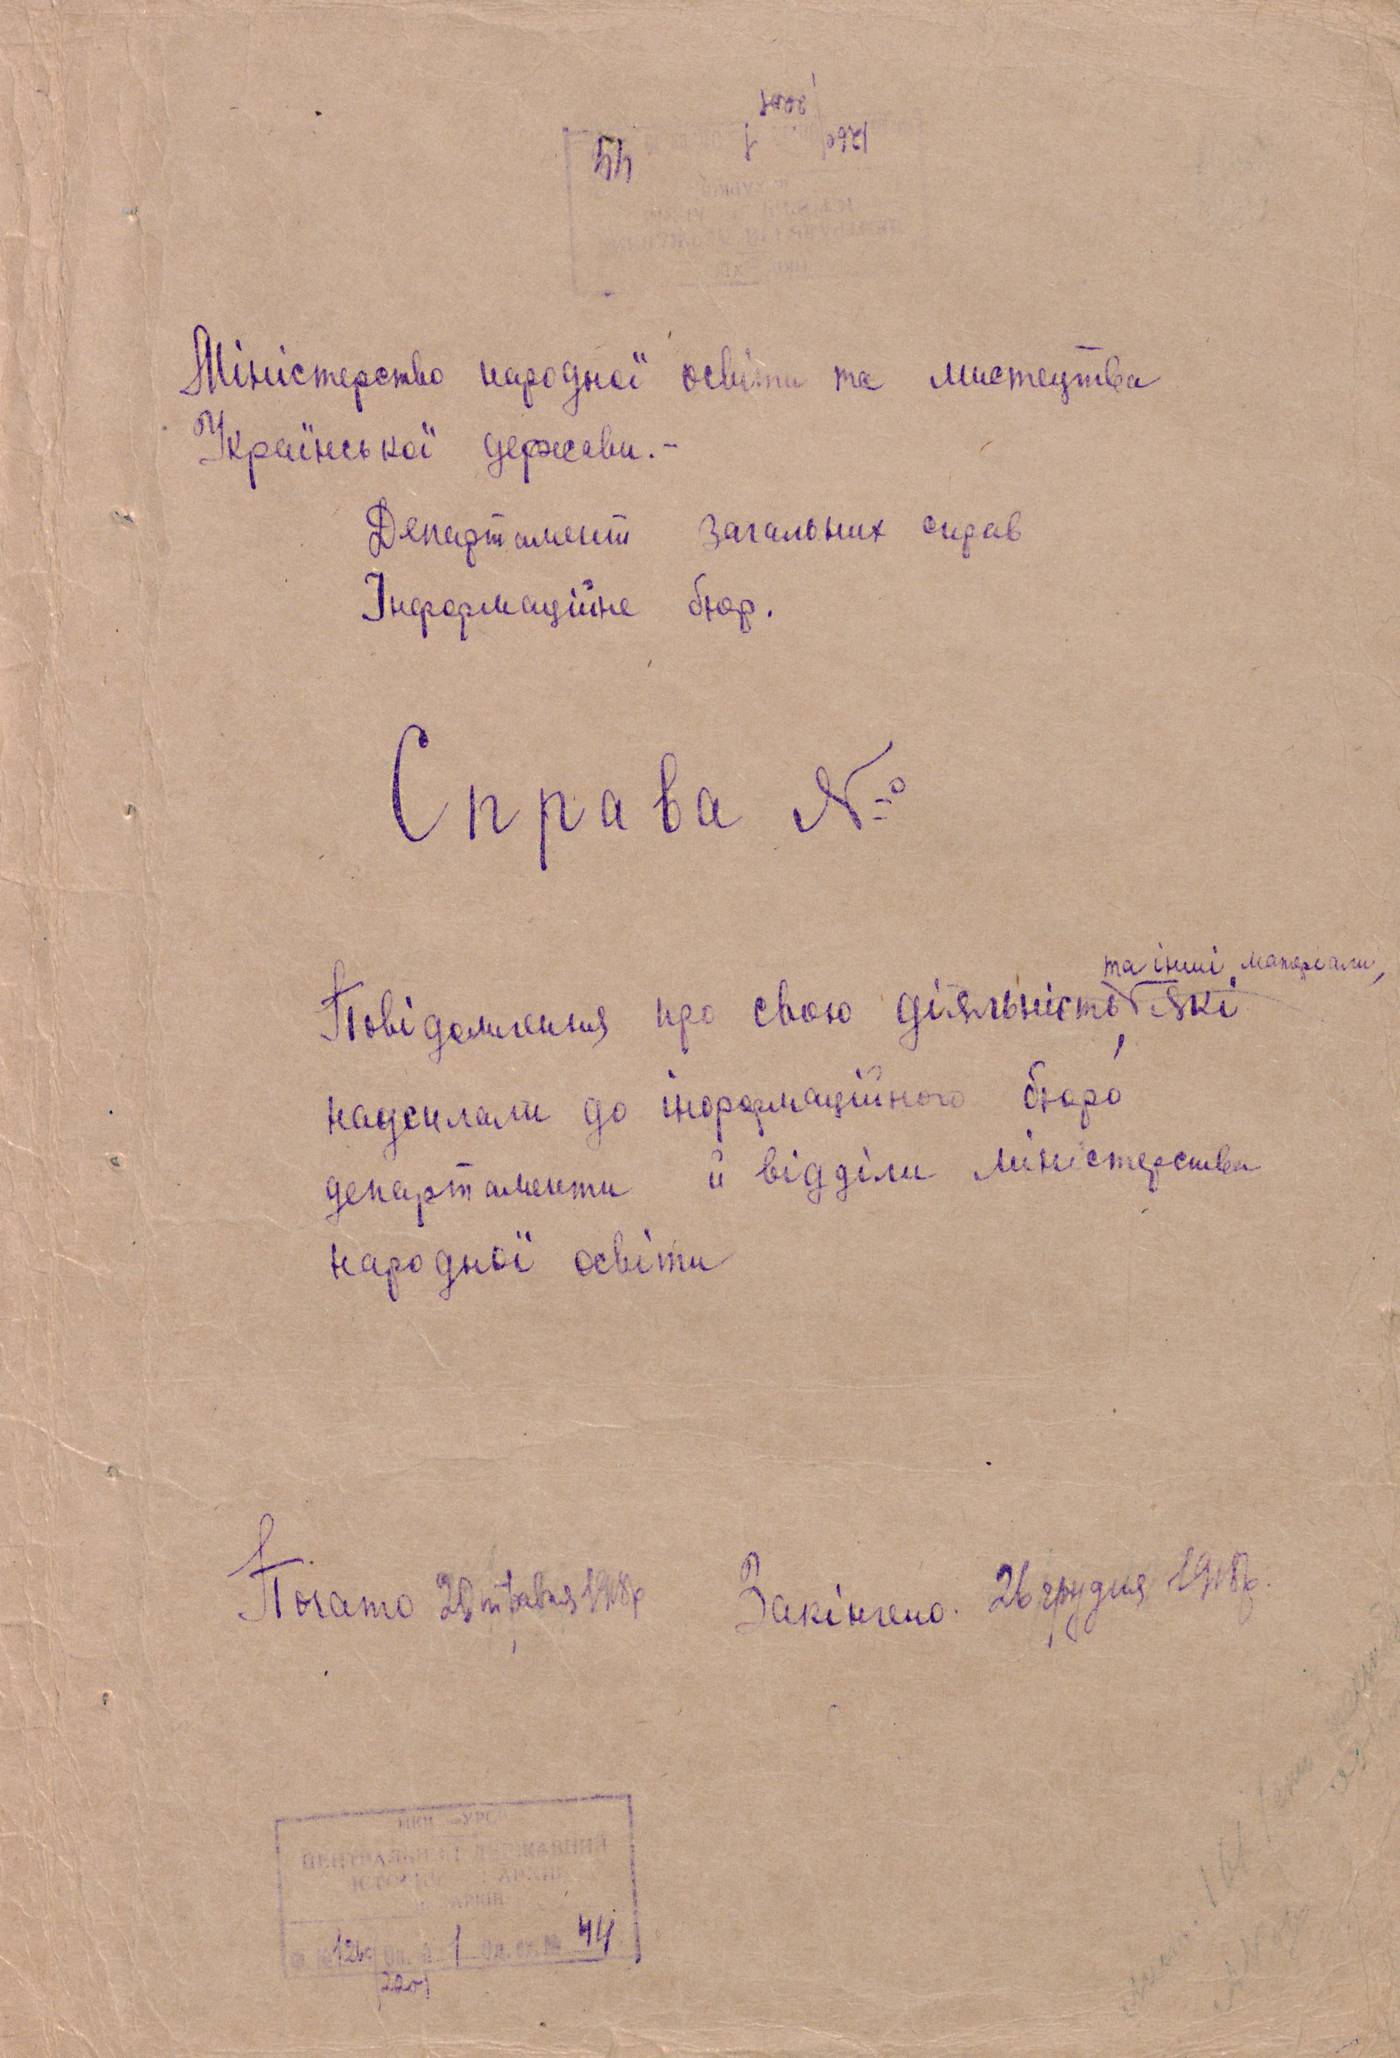 Міністерство народної освіти та мистецтва
Української держави.-
Департамент загальних справ
Інформаційне бюр.
Справа №
та інші матеріали,
Повідомлення про свою діяльність які
надсилали до інформаційного бюро
департаменти й відділи міністерства
народної освіти
Почато 20 травня 1918р Закінчено. 26 грудня 1918р.
УРСР
ЦЕНТРАЛЬНИЙ ДЕРЖАВНИЙ
АРХІВ
1 Од. зб. № 44
2201